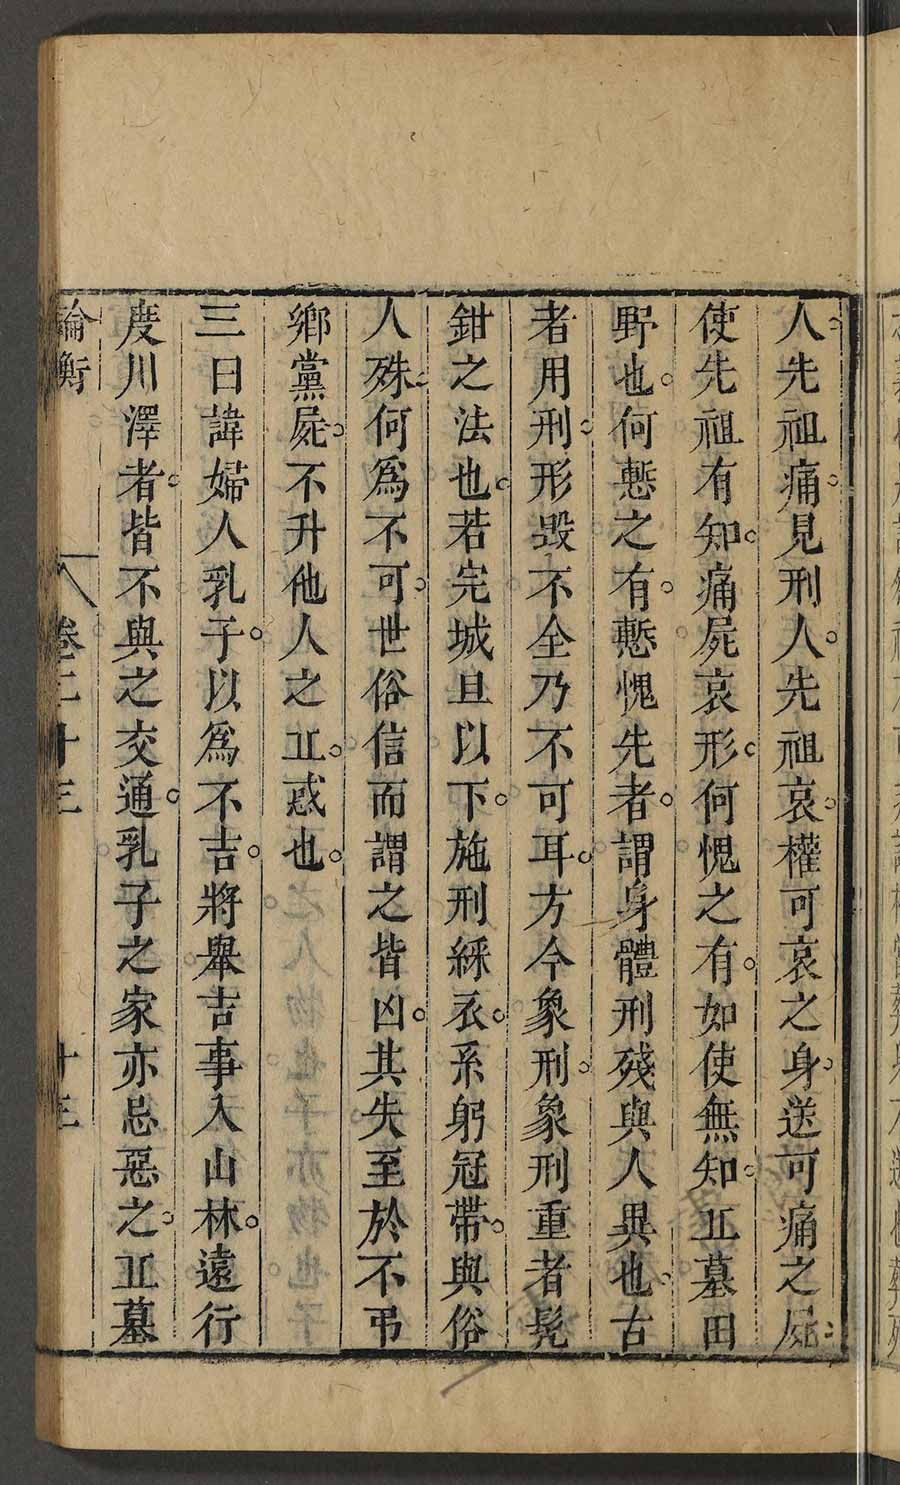 人先祖痛見刑人先祖哀權可哀之身送可痛之屍
使先祖有知痛屍哀形何愧之有如使無知丘墓田
野也何慙之有慙愧先者謂身體刑殘與人異也古
者用刑形毀不全乃不可耳方今象刑象刑重者髡
鉗之法也若完城旦以下施刑綵衣系躬冠帶與俗
人殊何爲不可世俗信而謂之皆凶其失至於不弔
鄉黨屍不升他人之丘惑也
三曰諱婦人乳子以爲不吉將舉吉事入山林遠行
度川澤者皆不與之交通乳子之家亦忌惡之丘墓
論衡 卷二十三 十三